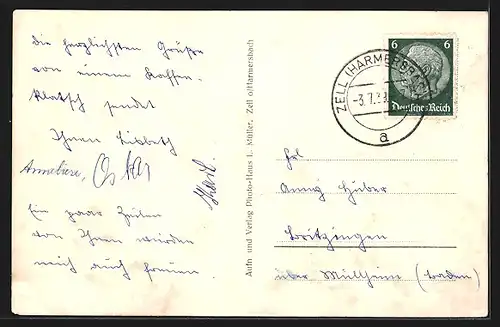 die herzlichsten Grüße
von einem Kaffee-
klatsch sendet
Ihnen Lisbeth
Anneliese, Oskar
Karl.
Ein paar Zeilen
von Ihnen würden
mich auch freuen.
Aufn und Verlag Photo-Haus L. Müller, Zell a/Harmersbach
ZELL (HARMERSBACH)
-3.7.38
a
6 6
Deutsches Reich
Frl
Anny Huber
Britzingen
über Müllheim (Baden)